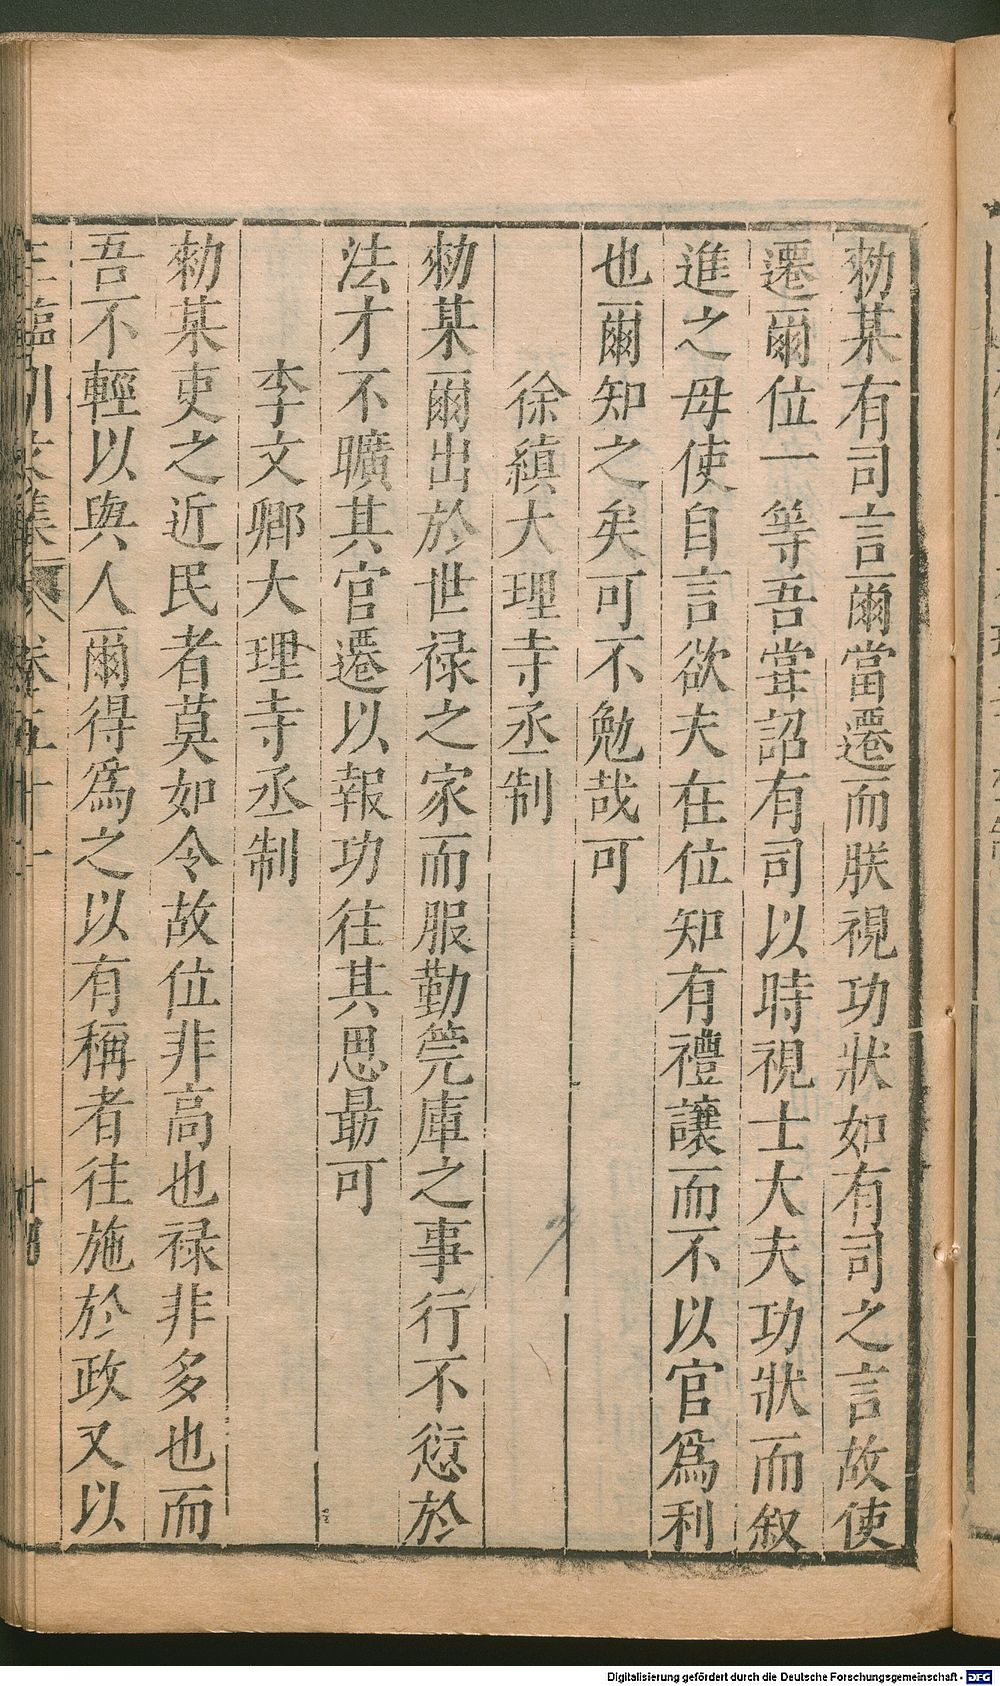 勑某有司言爾當遷而朕視功狀如有司之言故使
遷爾位一等吾甞詔有司以時視士大夫功狀而叙
進之毋使自言欲夫在位知有禮讓而不以官爲利
也爾知之矣可不勉哉可
徐縝大理寺丞制
勑某爾出於世禄之家而服勤筦庫之事行不愆於
法才不曠其官遷以報功往其思最可
李文卿大理寺丞制
勑某吏之近民者莫如令故位非高也禄非多也而
吾不輕以與人爾得爲之以有稱者往施於政又以
王臨川文集 卷五十一
Digitalisierung gefördert durch die Deutsche Forschungsgemeinschaft - DFG